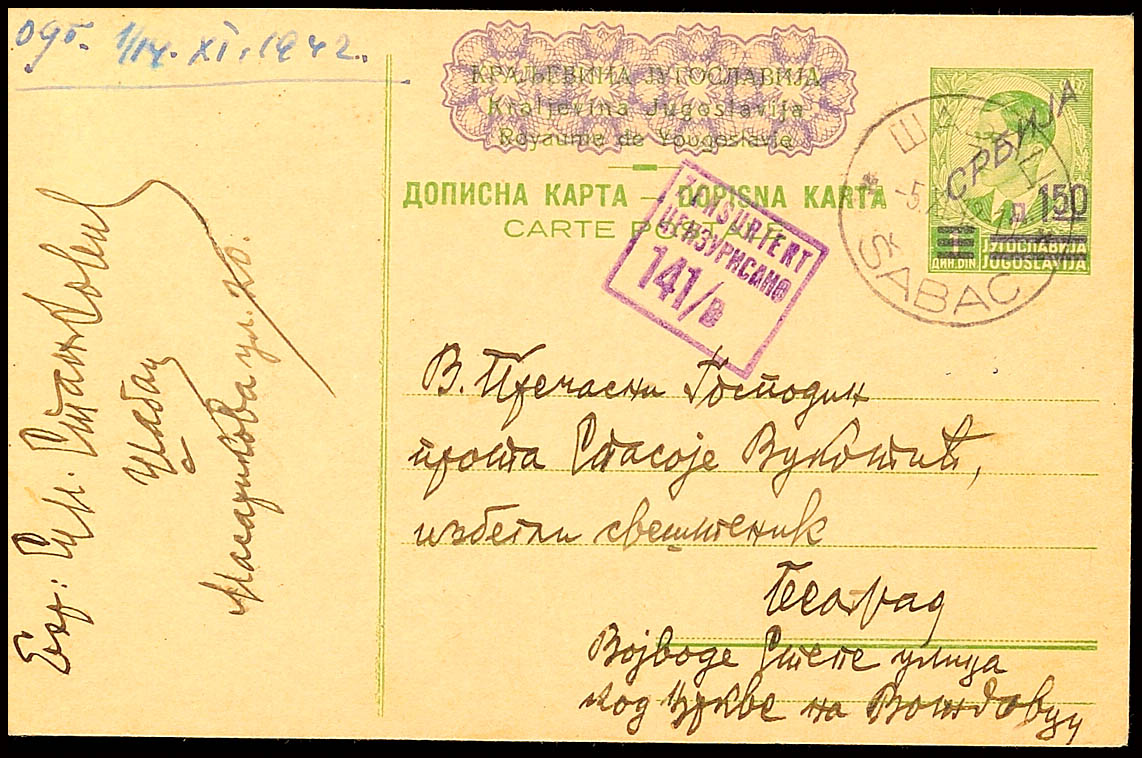 одг. 1/14. XI. 1942.
КРАЉЕВИНА ЈУГОСЛАВИЈА
Kraljevina Jugoslavija
Royaume de Yougoslavie
ДОПИСНА КАРТА — DOPISNA KARTA
CARTE POSTALE
ZENSURIERT
ЦЕНЗУРИСАНО
141/B
ŠABAC
СРБИЈА
1.50
ЈУГОСЛАВИЈА
ДИН. DIN JUGOSLAVIJA
В. Пречасни Господин
прота Спасоје Вукотић,
избегли свештеник
Београд
Војводе Степе улица
код цркве на Вождовцу
Станковић
Шабац
Масарикова ул. 20.